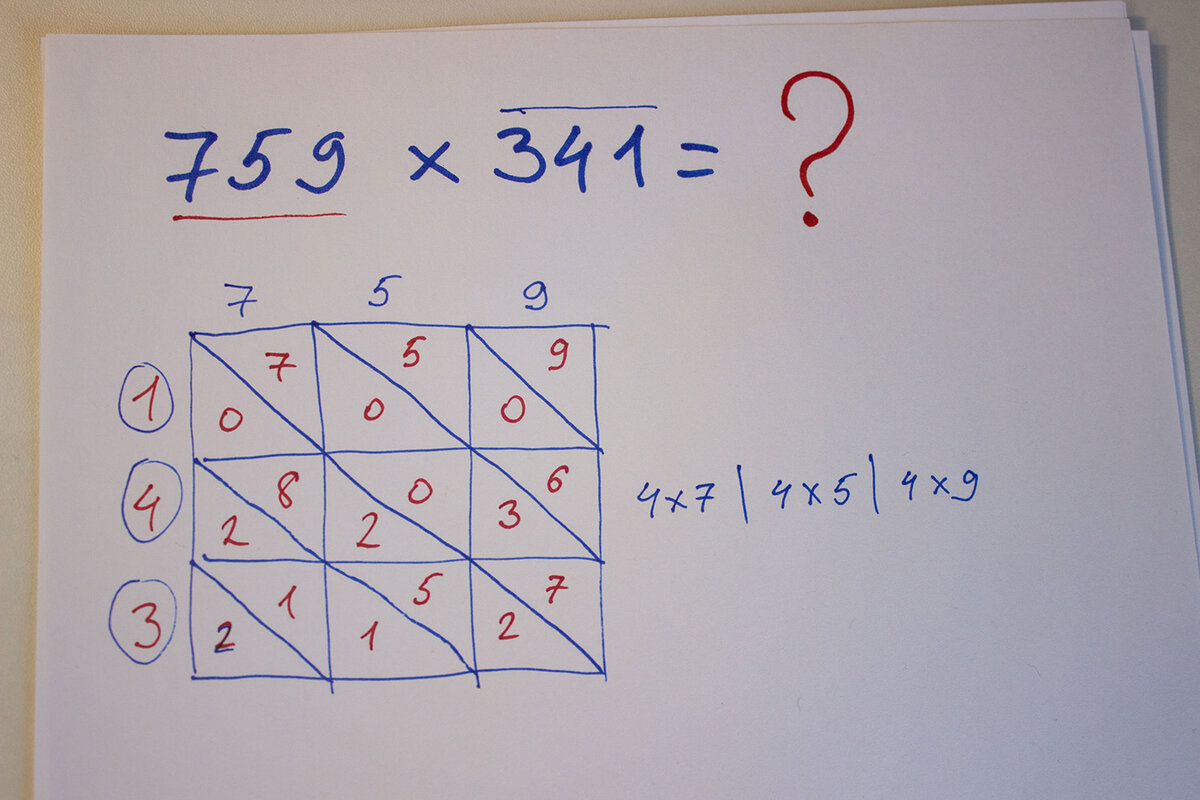 759 × 341 = ?
7 5 9
1 7 5 9
0 0 0
4 8 0 6 4×7 | 4×5 | 4×9
2 2 3
3 1 5 7
2 1 2